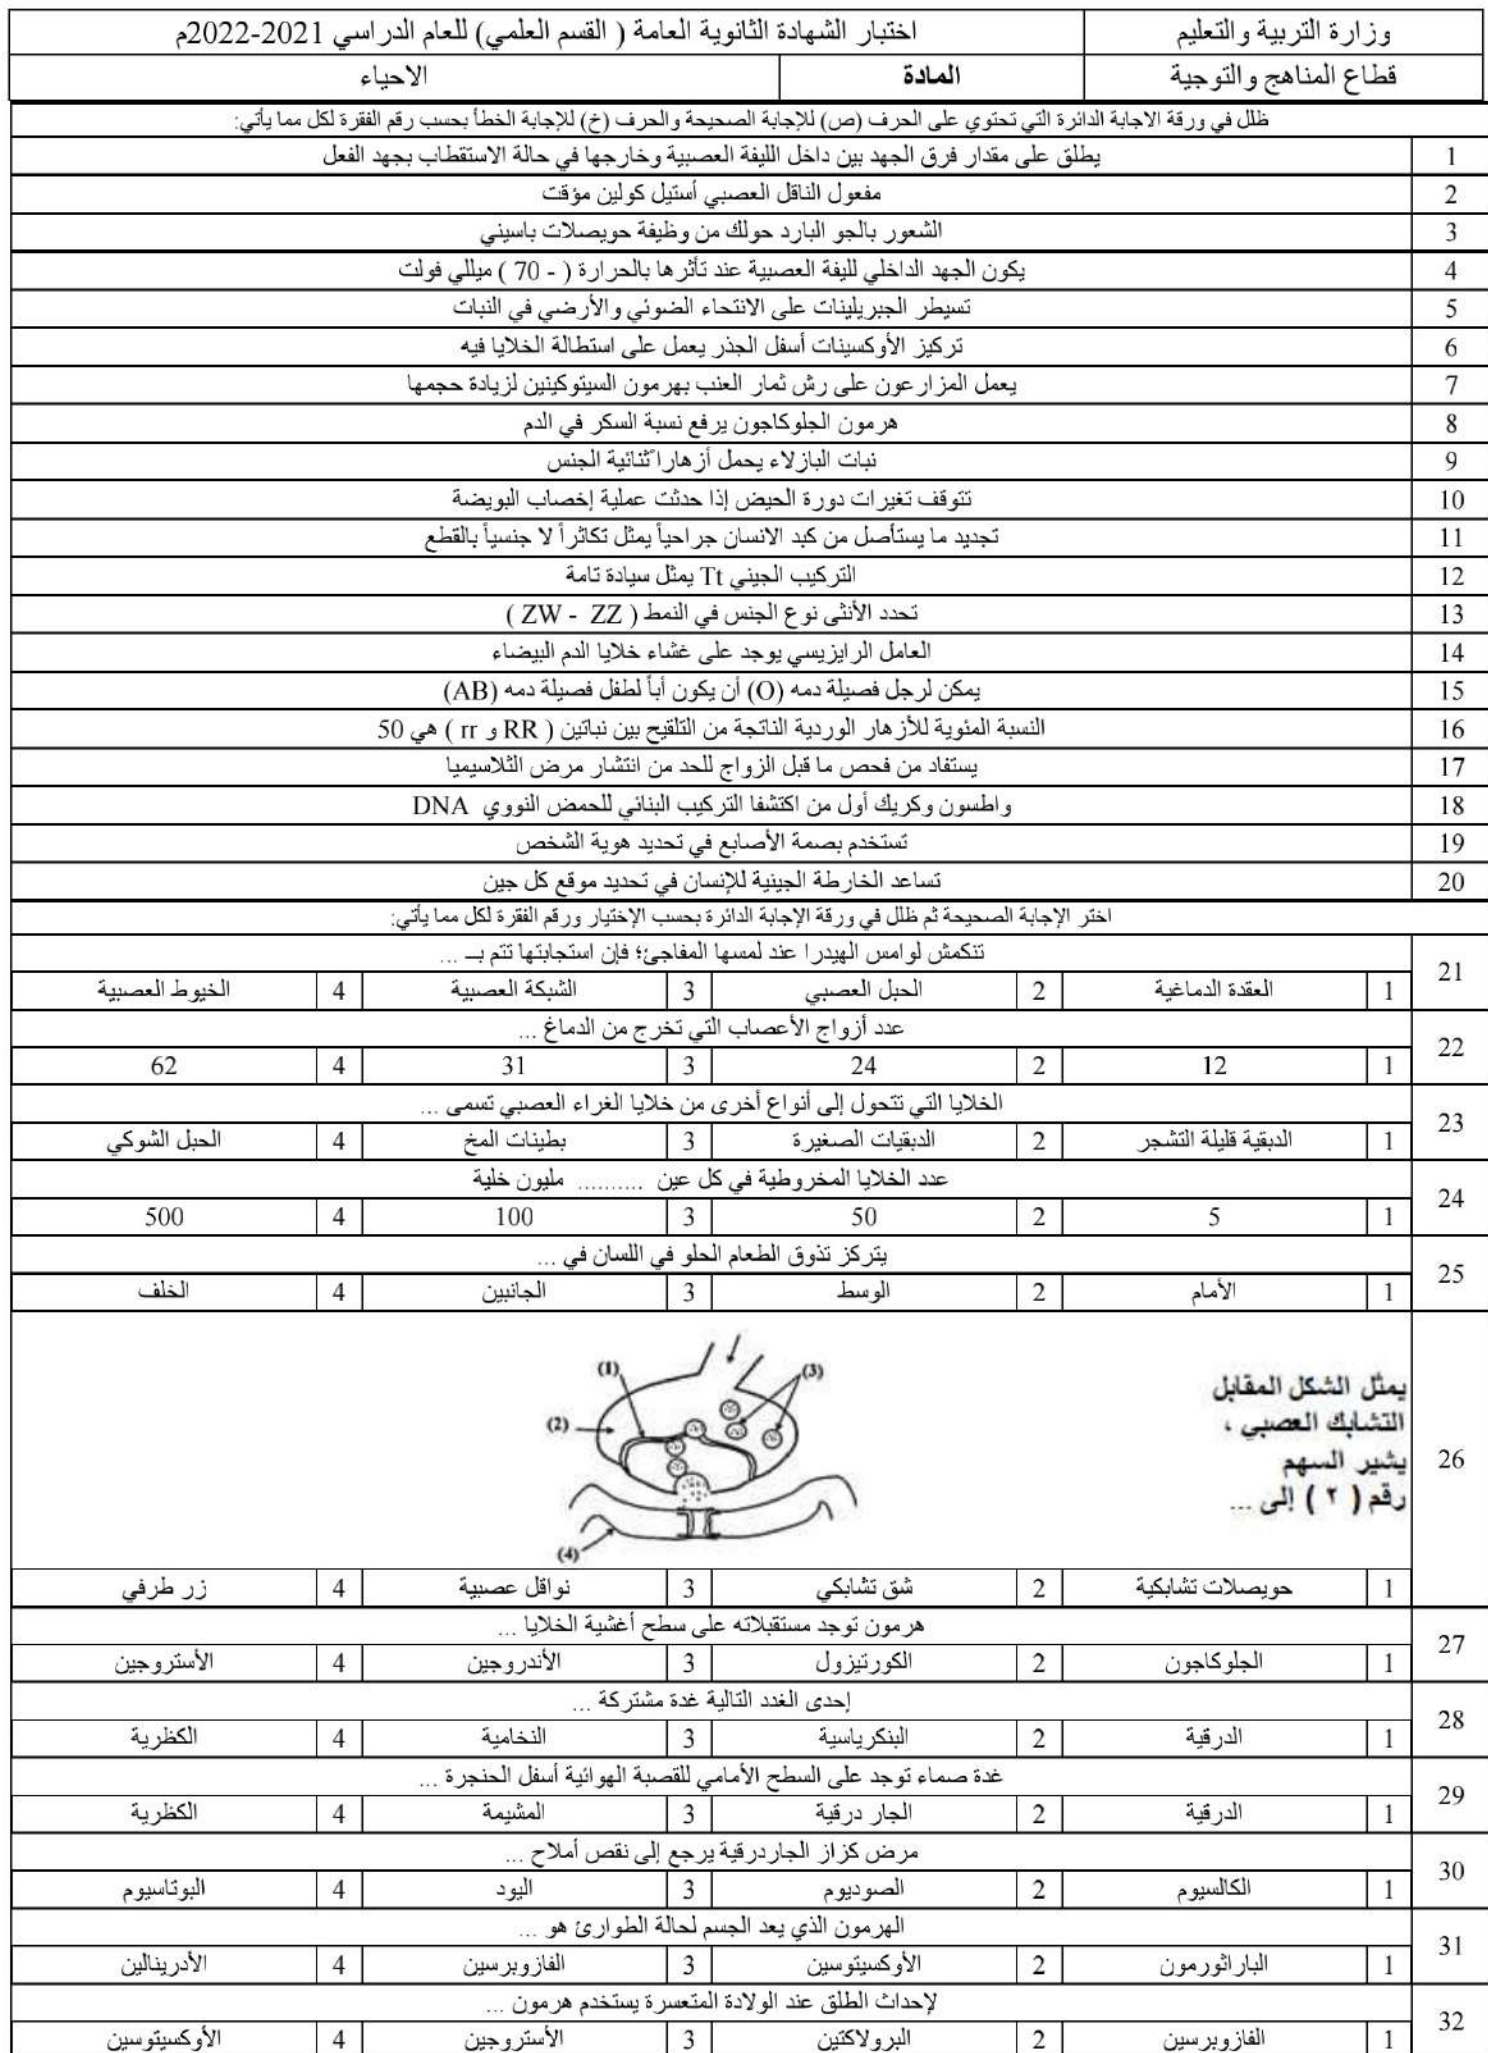 وزارة التربية والتعليم
اختبار الشهادة الثانوية العامة ( القسم العلمي) للعام الدراسي 2021-2022م
قطاع المناهج والتوجية
المادة
الاحياء
ظلل في ورقة الاجابة الدائرة التي تحتوي على الحرف (ص) للإجابة الصحيحة والحرف (خ) للإجابة الخطأ بحسب رقم الفقرة لكل مما يأتي:
1 يطلق على مقدار فرق الجهد بين داخل الليفة العصبية وخارجها في حالة الاستقطاب بجهد الفعل
2 مفعول الناقل العصبي أستيل كولين مؤقت
3 الشعور بالجو البارد حولك من وظيفة حويصلات باسيني
4 يكون الجهد الداخلي لليفة العصبية عند تأثرها بالحرارة ( - 70 ) ميللي فولت
5 تسيطر الجبريلينات على الانتحاء الضوئي والأرضي في النبات
6 تركيز الأوكسينات أسفل الجذر يعمل على استطالة الخلايا فيه
7 يعمل المزارعون على رش ثمار العنب بهرمون السيتوكينين لزيادة حجمها
8 هرمون الجلوكاجون يرفع نسبة السكر في الدم
9 نبات البازلاء يحمل أزهاراً ثنائية الجنس
10 تتوقف تغيرات دورة الحيض إذا حدثت عملية إخصاب البويضة
11 تجديد ما يستأصل من كبد الانسان جراحياً يمثل تكاثراً لا جنسياً بالقطع
12 التركيب الجيني Tt يمثل سيادة تامة
13 تحدد الأنثى نوع الجنس في النمط ( ZW - ZZ )
14 العامل الرايزيسي يوجد على غشاء خلايا الدم البيضاء
15 يمكن لرجل فصيلة دمه (O) أن يكون أباً لطفل فصيلة دمه (AB)
16 النسبة المئوية للأزهار الوردية الناتجة من التلقيح بين نباتين ( RR و rr ) هي 50
17 يستفاد من فحص ما قبل الزواج للحد من انتشار مرض الثلاسيميا
18 واطسون وكريك أول من اكتشفا التركيب البنائي للحمض النووي DNA
19 تستخدم بصمة الأصابع في تحديد هوية الشخص
20 تساعد الخارطة الجينية للإنسان في تحديد موقع كل جين
اختر الإجابة الصحيحة ثم ظلل في ورقة الإجابة الدائرة بحسب الإختيار ورقم الفقرة لكل مما يأتي:
21 تنكمش لوامس الهيدرا عند لمسها المفاجئ؛ فإن استجابتها تتم بـ ...
1 العقدة الدماغية 2 الحبل العصبي 3 الشبكة العصبية 4 الخيوط العصبية
22 عدد أزواج الأعصاب التي تخرج من الدماغ ...
1 12 2 24 3 31 4 62
23 الخلايا التي تتحول إلى أنواع أخرى من خلايا الغراء العصبي تسمى ...
1 الدبقية قليلة التشجر 2 الدبقيات الصغيرة 3 بطينات المخ 4 الحبل الشوكي
24 عدد الخلايا المخروطية في كل عين .......... مليون خلية
1 5 2 50 3 100 4 500
25 يتركز تذوق الطعام الحلو في اللسان في ...
1 الأمام 2 الوسط 3 الجانبين 4 الخلف
26
يمثل الشكل المقابل
التشابك العصبي ،
يشير السهم
رقم ( ٢ ) إلى ...
(1)
(3)
(2)
(4)
1 حويصلات تشابكية 2 شق تشابكي 3 نواقل عصبية 4 زر طرفي
27 هرمون توجد مستقبلاته على سطح أغشية الخلايا ...
1 الجلوكاجون 2 الكورتيزول 3 الأندروجين 4 الأستروجين
28 إحدى الغدد التالية غدة مشتركة ...
1 الدرقية 2 البنكرياسية 3 النخامية 4 الكظرية
29 غدة صماء توجد على السطح الأمامي للقصبة الهوائية أسفل الحنجرة ...
1 الدرقية 2 الجار درقية 3 المشيمة 4 الكظرية
30 مرض كزاز الجاردرقية يرجع إلى نقص أملاح ...
1 الكالسيوم 2 الصوديوم 3 اليود 4 البوتاسيوم
31 الهرمون الذي يعد الجسم لحالة الطوارئ هو ...
1 الباراثورمون 2 الأوكسيتوسين 3 الفازوبرسين 4 الأدرينالين
32 لإحداث الطلق عند الولادة المتعسرة يستخدم هرمون ...
1 الفازوبرسين 2 البرولاكتين 3 الأستروجين 4 الأوكسيتوسين